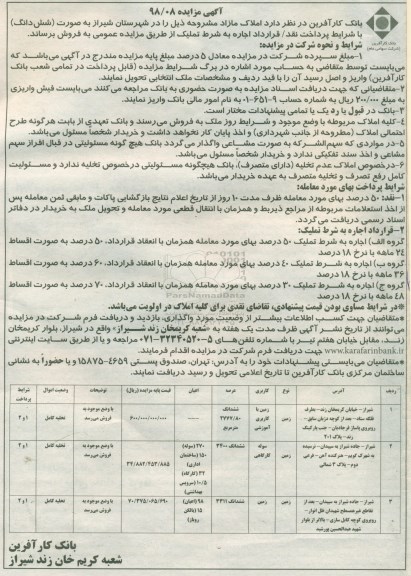 آگهی مزایده ۹۸/۰۸
بانک کارآفرین در نظر دارد املاک مازاد مشروحه ذیل را در شهرستان شیراز به صورت (شش‌دانگ)
با شرایط پرداخت نقد/ قرارداد اجاره به شرط تملیک از طریق مزایده عمومی به فروش برساند.
شرایط و نحوه شرکت در مزایده:
۱-مبلغ سپرده شرکت در مزایده معادل ۵ درصد مبلغ پایه مزایده مندرج در آگهی می‌باشد که
می‌بایست توسط متقاضی به حساب مورد اشاره در برگ شرایط مزایده (قابل پرداخت در تمامی شعب بانک
کارآفرین) واریز و اصل رسید آن را با قید ردیف و مشخصات ملک انتخابی تحویل نمایند.
۲-متقاضیانی که جهت دریافت اسناد مزایده به صورت حضوری به بانک مراجعه می‌کنند می‌بایست فیش واریزی
به مبلغ ۲۰۰/۰۰۰ ریال به شماره حساب ۹-۶۵۱-۰۱ به نام امور مالی بانک واریز نمایند.
۳-بانک در قبول یا رد یک یا تمامی پیشنهادات مختار است.
۴-کلیه املاک مربوطه با وضع موجود و شرایط روز ملک به فروش می‌رسند و بانک تعهدی از بابت هرگونه طرح
احتمالی املاک (مطروحه از جانب شهرداری) و اخذ پایان کار نخواهد داشت و خریدار شخصاً مسئول می‌باشد.
۵-در مواردی که سهم‌الشرکه به صورت مشاعی واگذار می‌گردد بانک هیچ گونه مسئولیتی در قبال افراز سهم
مشاعی و اخذ سند تفکیکی ندارد و خریدار شخصاً مسئول می‌باشد.
۶-درخصوص املاک عدم تخلیه (دارای متصرف)، بانک هیچ‌گونه مسئولیتی درخصوص تخلیه ندارد و مسئولیت
کامل رفع تصرف و تخلیه متصرف به عهده خریدار می‌باشد.
شرایط پرداخت بهای مورد معامله:
۱-نقد: ۵۰ درصد بهای مورد معامله ظرف مدت ۱۰ روز از تاریخ اعلام نتایج بازگشایی پاکات و مابقی ثمن معامله پس
از اخذ استعلامات مربوطه از مراجع ذیربط و همزمان با انتقال قطعی مورد معامله و تحویل ملک به خریدار در دفاتر
اسناد رسمی دریافت می‌گردد.
۲-قرارداد اجاره به شرط تملیک:
گروه الف) اجاره به شرط تملیک ۵۰ درصد بهای مورد معامله همزمان با انعقاد قرارداد، ۵۰ درصد به صورت اقساط
۲۴ ماهه با نرخ ۱۸ درصد
گروه ب) اجاره به شرط تملیک ۴۰ درصد بهای مورد معامله همزمان با انعقاد قرارداد، ۶۰ درصد به صورت اقساط
۳۶ ماهه با نرخ ۱۸ درصد
گروه ج) اجاره به شرط تملیک ۳۰ درصد بهای مورد معامله همزمان با انعقاد قرارداد، ۷۰ درصد به صورت اقساط
۴۸ ماهه با نرخ ۱۸ درصد
*در شرایط مساوی بودن قیمت پیشنهادی، تقاضای نقدی برای کلیه املاک در اولویت می‌باشد.
*متقاضیان جهت کسب اطلاعات بیشتر از وضعیت مورد واگذاری، بازدید و دریافت فرم شرکت در مزایده
می‌توانند از تاریخ نشر آگهی ظرف مدت یک هفته به «شعبه کریمخان زند شیراز» واقع در شیراز، بلوار کریمخان
زند، مقابل خیابان هفتم تیر با شماره تلفن‌های ۵-۳۲۳۴۰۵۲۰-۰۷۱ مراجعه و یا از طریق سایت اینترنتی
www.karafarinbank.ir جهت دریافت فرم شرکت در مزایده اقدام فرمایند.
*متقاضیان می‌بایستی پیشنهادات خود را به آدرس: تهران، صندوق پستی ۶۶۵۹-۱۵۸۷۵ و یا حضوراً به نشانی
ساختمان مرکزی بانک کارآفرین تا تاریخ اعلامی تحویل و رسید دریافت نمایند.
ردیف آدرس نوع کاربری عرصه اعیان قیمت پایه مزایده (ریال) توضیحات وضعیت اموال شرایط پرداخت
۱ شیراز - خیابان کریمخان زند - زمین زمین با کاربری آموزشی ششدانگ ۶۰۰/۰۰۰/۰۰۰/۰۰۰ با وضع موجود به فروش می‌رسد تخلیه کامل ۱ و ۲
۲ شیراز - جاده شیراز به سپیدان - نرسیده به شهرک کویم - سوله کارگاهی ششدانگ ۳۴۰۰ با وضع موجود به فروش می‌رسد تخلیه کامل ۱ و ۲
۳ شیراز - جاده شیراز به سپیدان - بعد از زمین زمین ششدانگ ۳۴۱۱ با وضع موجود به فروش می‌رسد تخلیه کامل ۱ و ۲
بانک کارآفرین
شعبه کریم خان زند شیراز